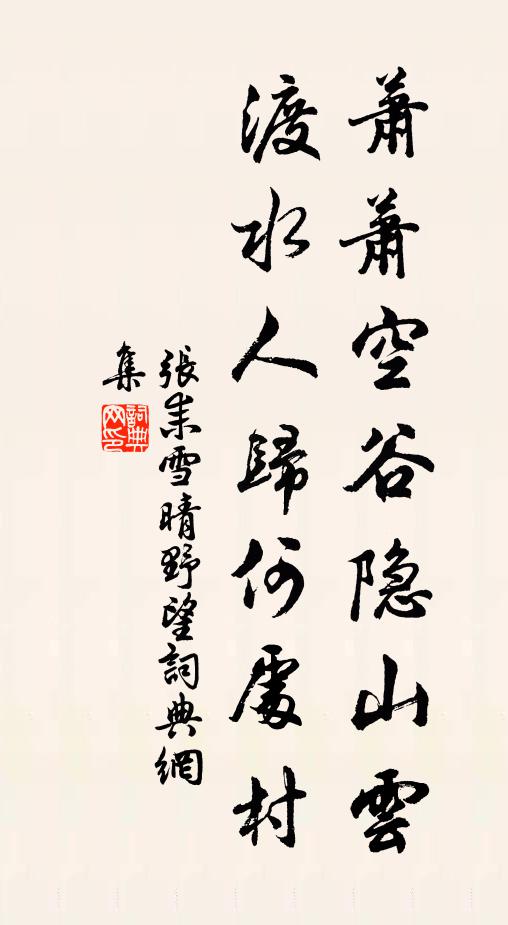 蕭蕭空谷隐山雲
渡水人歸何處村
張耒雪晴野望詞典網
集
詞典
网印